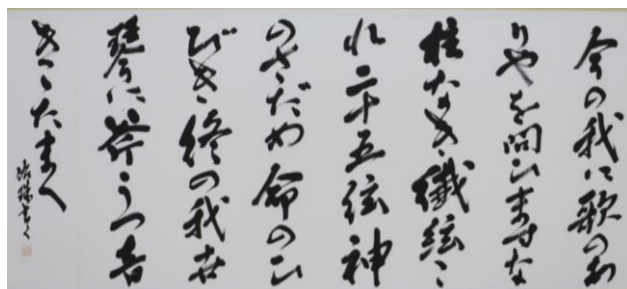 今の我に歌のあ
りやを問ひますな
柱なき繊絃こ
れ二十五絃神
のさだめ命のひ
びき終の我世
琴に斧うつ音
きゝたまへ